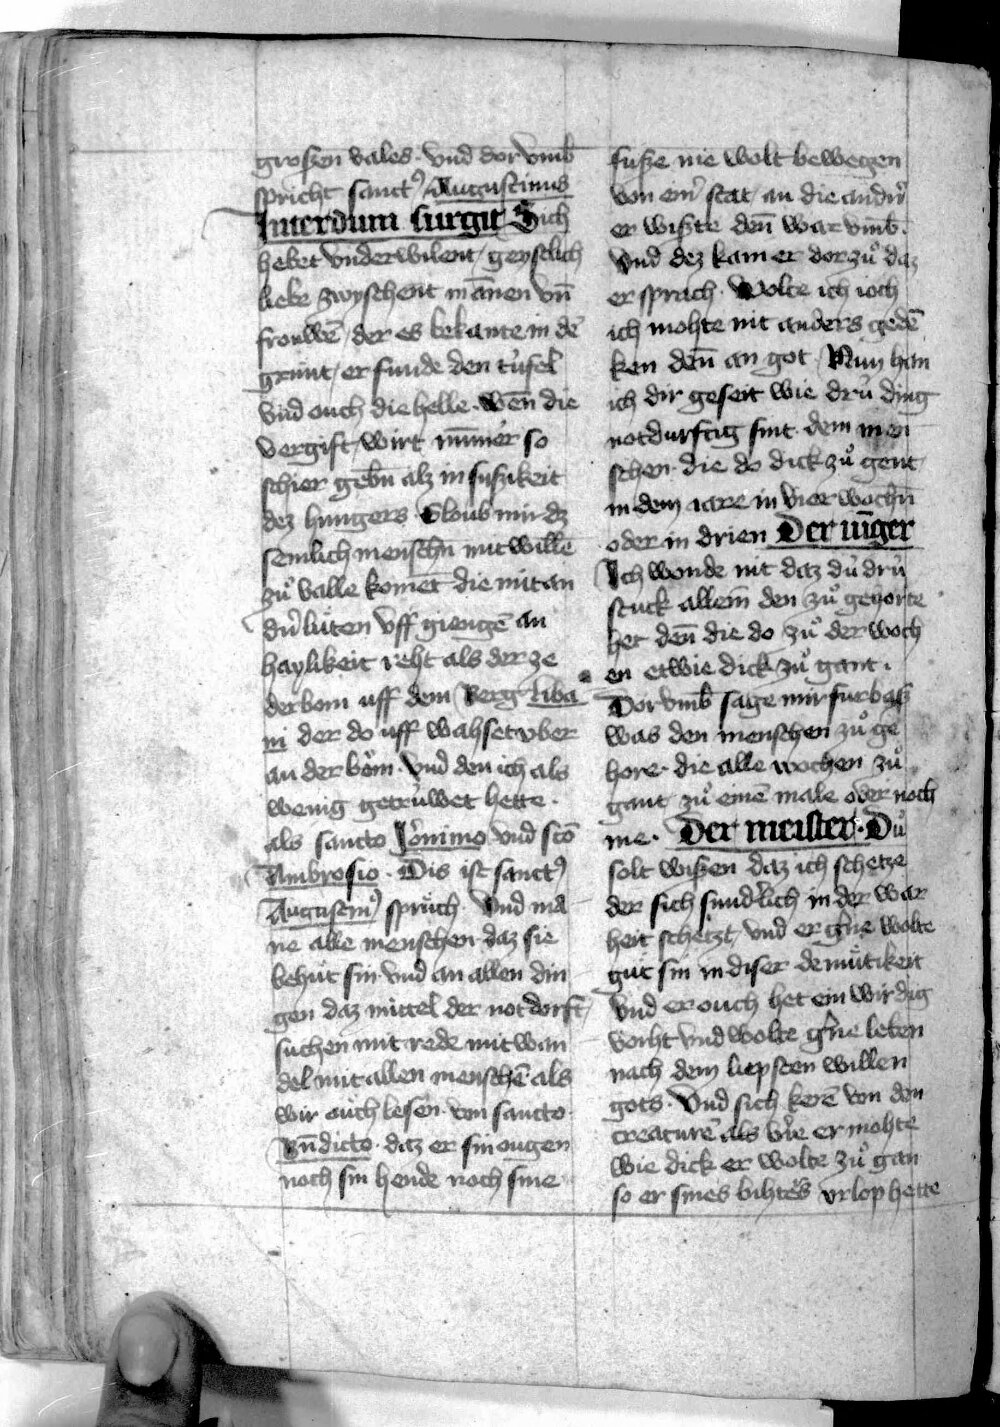 groszen vales · vnd dor vmb
spricht sanctꝰ Augustinus
Interdum surgit Sich
hebet vnderwilent geystlich
liebe zwyschent mānen vn̄
frouwē der es bekante in dē
grunt er funde den tu̍fel
vnd ouch die helle · wēn die
vergift wirt nim̄er so
schier gebn̄ alz in suszikeit
dez hungers Gloub mir dz
semlich menschn̄ mit wille̅
zuͦ valle komet die mit an
dr̄ luten vff giengē an
haylikeit reht als der ze
derbom uff dem berg liba
ni der do uff wahset vber
an der bo̍m · vnd den ich als
wenig getru̍wet hette ·
als sancto Jeronimo vnd sco̅
Ambrosio · Dis ist sanctꝰ
Augustinꝰ spru̍ch · vnd ma
ne alle menschen daz sie
behu̍t sin vnd an allen din
gen daz mittel der notdorft
suchen mit rede mit wan
del mit allen menschē als
wir ouch lesen · von sancto
Bn̄dicto · daz er sin ougen
noch sin hende noch sine
fusze nie wolt bewegen
von einr̄ stat an die andr̄
er wiszte den̄ war vmb ·
Vnd dez kam er dor zuͦ daz
er sprach · Wolte ich ioch
ich mohte nit anders gedē
ken den̄ an got Nun han
ich dir geseit wie dru̍ ding
notdurftig sint dem men
schen · die do dick zuͦ gent
in dem iare in vier wochn̄
oder in drien Der iu̅ger
Ich wonde nit daz du̍ dru̍
stuck allein den zuͦ gehorte
het den̄ die do zuͦ der woch
en etwie dick zuͦ gant ·
Dor vmb sage mir furbasz
was den menschen zuͦ ge
hore · die alle wochen zuͦ
gant zuͦ einē male oder noch
me · Der meister · Duͦ
solt wiszen daz ich schetze
der sich sundlich in der war
heit schetzt vnd er gerne wolte
gut sin in diser demu̍tikeit
vnd er ouch het ein wirdig
vorht vnd wolte gerne leben
nach dem liepsten willen
gots · Vnd sich kerē von den
creaturē als vil er mohte
wie dick er wolte zuͦ gan
so er sines bihters vrlop hette